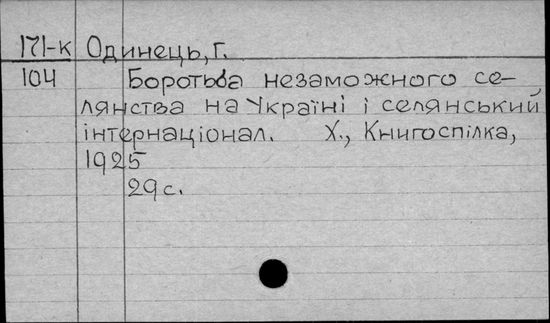 171-к Одинець, Г.
104 Боротьба незаможного се-
лянства на Україні і селянський
інтернаціонал. Х., Книгоспілка,
1925
29 с.